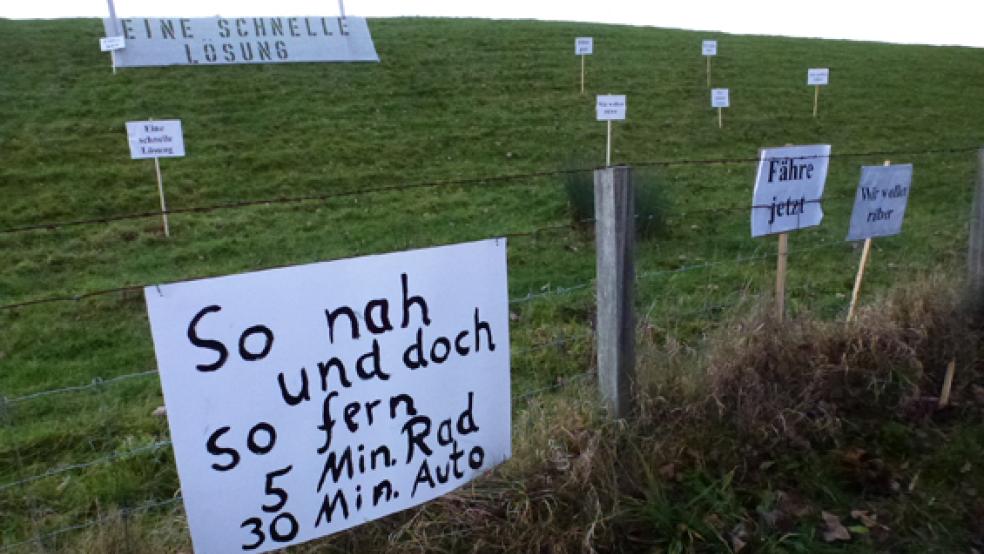 EINE SCHNELLE
LÖSUNG
Eine
schnelle
Lösung
Wir wollen
Fähre
jetzt
Wir wollen
rüber
So nah
und doch
so fern
5 Min. Rad
30 Min. Auto